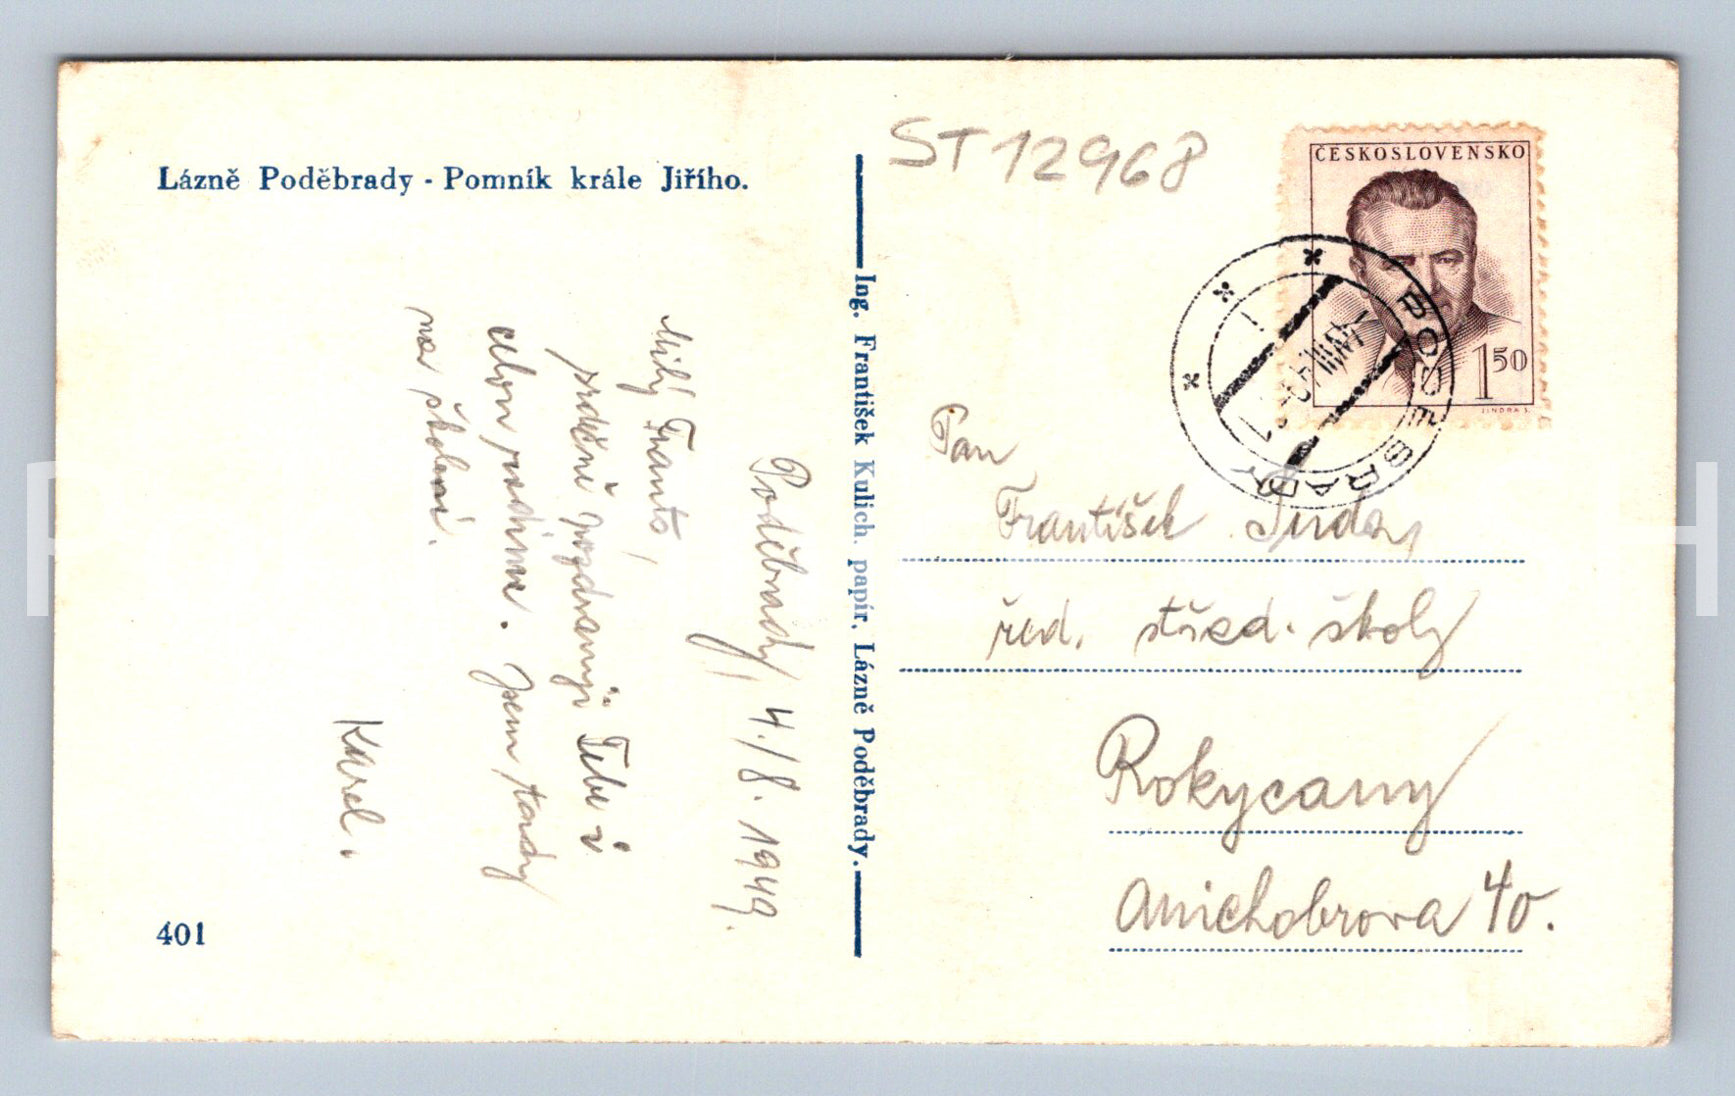 Lázně Poděbrady - Pomník krále Jiřího.
ST 12968
ČESKOSLOVENSKO
1 50
JINDRA S.
PODĚBRADY
Ing. František Kulich, papír, Lázně Poděbrady.
Poděbrady, 4./8. 1949.
Milý Franto,
srdečně pozdravuji Tebe i
celou rodinu. Jsem tady
na školení.
Karel.
Pan
František
řed. střed. školy
Rokycany
40.
401